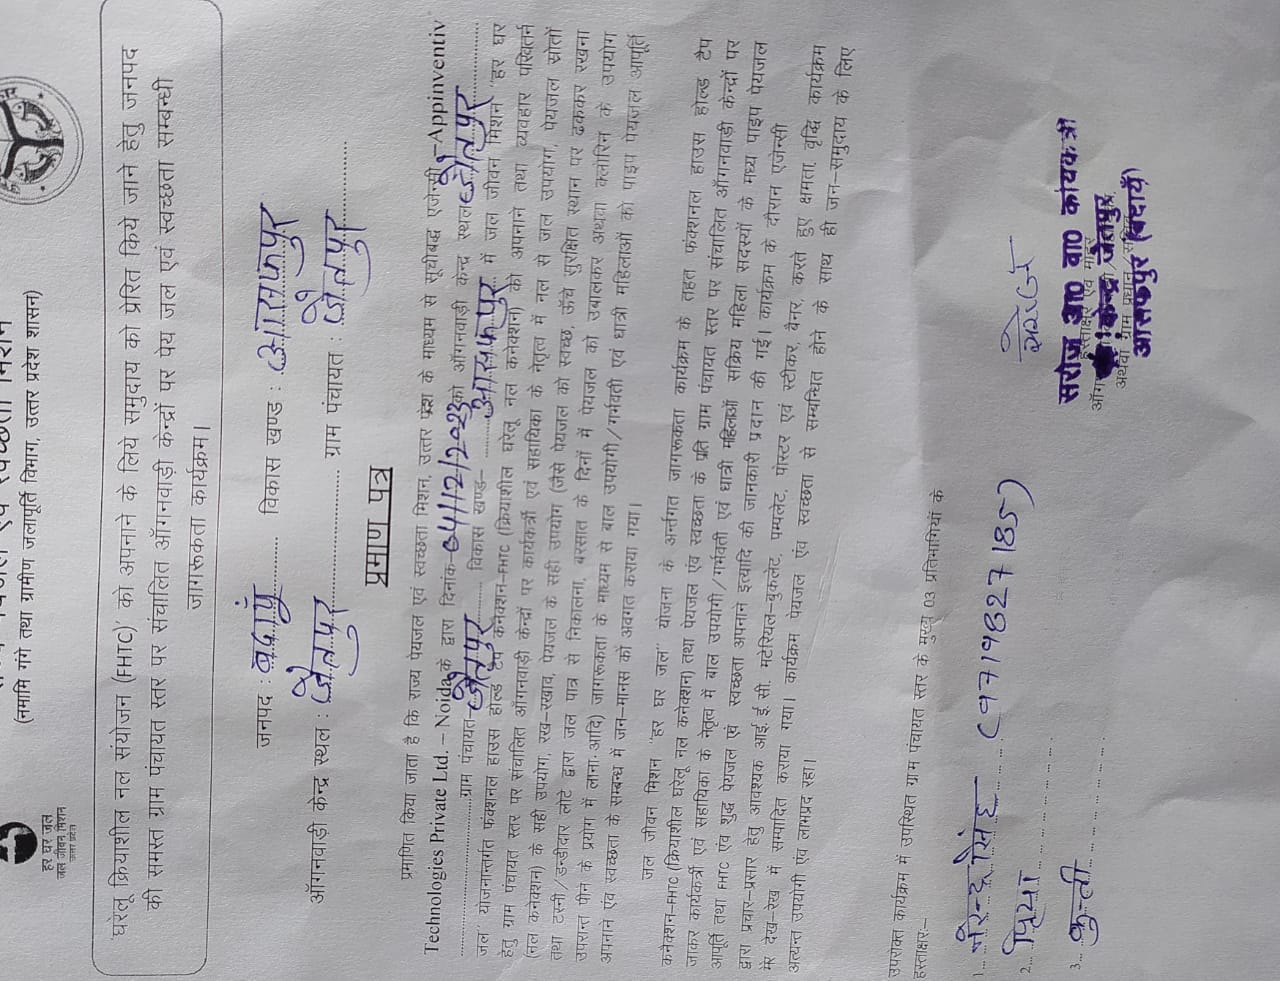 हर घर जल
जल जीवन मिशन
उत्तर प्रदेश
(नमामि गंगे तथा ग्रामीण जलापूर्ति विभाग, उत्तर प्रदेश शासन)
घरेलू क्रियाशील नल संयोजन (FHTC)' को अपनाने के लिये समुदाय को प्रेरित किये जाने हेतु जनपद
की समस्त ग्राम पंचायत स्तर पर संचालित ऑगनवाड़ी केन्द्रों पर पेय जल एवं स्वच्छता सम्बन्धी
जागरूकता कार्यक्रम।
जनपद : बदायूं विकास खण्ड : आसफपुर
ऑगनवाड़ी केन्द्र स्थल : जैतपुर ग्राम पंचायत : जैतपुर
प्रमाण पत्र
प्रमाणित किया जाता है कि राज्य पेयजल एवं स्वच्छता मिशन, उत्तर प्रदेश के माध्यम से सूचीबद्ध एजेन्सी–Appinventiv
Technologies Private Ltd. – Noida के द्वारा दिनांक–04/12/2023 को ऑगनवाड़ी केन्द्र स्थल जैतपुर
ग्राम पंचायत जैतपुर विकास खण्ड– आसफपुर में जल जीवन मिशन "हर घर
जल" योजनान्तर्गत फंक्शनल हाउस होल्ड टैप कनेक्शन–FHTC (क्रियाशील घरेलू नल कनेक्शन) को अपनाने तथा व्यवहार परिवर्तन
हेतु ग्राम पंचायत स्तर पर संचालित ऑगनवाड़ी केन्द्रों पर कार्यकर्त्री एवं सहायिका के नेतृत्व में नल से जल उपयोग, पेयजल स्रोतों
(नल कनेक्शन) के सही उपयोग, रख–रखाव, पेयजल के सही उपयोग (जैसे पेयजल को स्वच्छ, ऊँचे सुरक्षित स्थान पर ढककर रखना
तथा टल्नी/डन्डीदार लोटे द्वारा जल पात्र से निकालना, बरसात के दिनों में पेयजल को उबालकर अथवा क्लोरिन के उपयोग
उपरान्त पीने के प्रयोग में लाना..आदि) जागरूकता के माध्यम से बाल उपयोगी/गर्भवती एवं धात्री महिलाओं को पाइप पेयजल आपूर्ति
अपनाने एंव स्वच्छता के सम्बन्ध में जन–मानस को अवगत कराया गया।
जल जीवन मिशन "हर घर जल" योजना के अर्न्तगत जागरूकता कार्यक्रम के तहत फंक्शनल हाउस होल्ड टैप
कनेक्शन–FHTC (क्रियाशील घरेलू नल कनेक्शन) तथा पेयजल एंव स्वच्छता के प्रति ग्राम पंचायत स्तर पर संचालित ऑगनवाड़ी केन्द्रों पर
जाकर कार्यकर्त्री एवं सहायिका के नेतृत्व में बाल उपयोगी/गर्भवती एवं धात्री महिलाओं सक्रिय महिला सदस्यों के मध्य पाइप पेयजल
आपूर्ति तथा FHTC एवं शुद्ध पेयजल एवं स्वच्छता अपनाने इत्यादि की जानकारी प्रदान की गई। कार्यक्रम के दौरान एजेन्सी
द्वारा प्रचार–प्रसार हेतु आवश्यक आई.ई.सी. मटेरियल–बुकलेट, पम्पलेट, पोस्टर एवं स्टीकर, बैनर, करते हुए क्षमता वृद्धि कार्यक्रम
मेरे देख–रेख में सम्पादित कराया गया। कार्यक्रम पेयजल एंव स्वच्छता से सम्बन्धित होने के साथ ही जन–समुदाय के लिए
अत्यन्त उपयोगी एंव लाभप्रद रहा।
उपरोक्त कार्यक्रम में उपस्थित ग्राम पंचायत स्तर के मुख्य 03 प्रतिभागियों के
हस्ताक्षर:–
1... नरेन्द्र सिंह (9719827185)
2... प्रिया
3... कुन्ती
सरोज
हस्ताक्षर एवं मोहर
सरोज आं० वा० कार्यकत्री
केन्द्र जैतपुर
अथवा ग्राम प्रधान/सचिव
आसफपुर (बदायूँ)